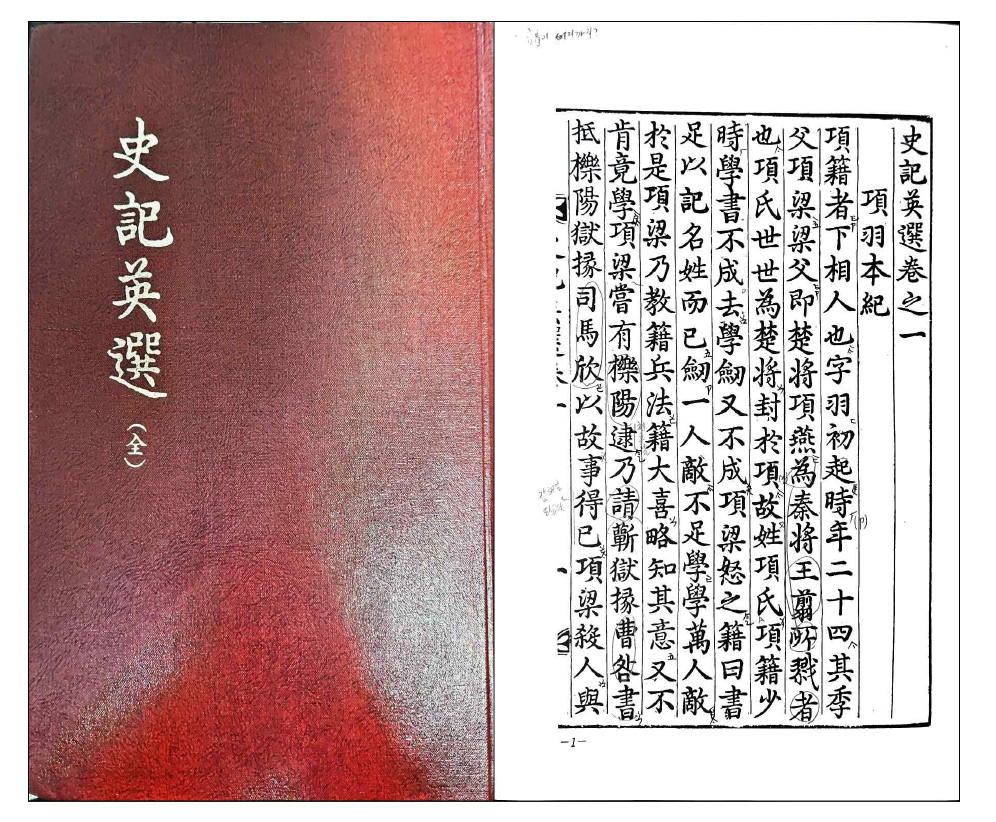 史記英選
(全)
史記英選卷之一
項羽本紀
項籍者下相人也字羽初起時年二十四其季
父項梁梁父即楚將項燕為秦將王翦所戮者
也項氏世世為楚將封於項故姓項氏項籍少
時學書不成去學劒又不成項梁怒之籍曰書
足以記名姓而已劒一人敵不足學學萬人敵
於是項梁乃教籍兵法籍大喜略知其意又不
肯竟學項梁嘗有櫟陽逮乃請蘄獄掾曹咎書
抵櫟陽獄掾司馬欣以故事得已項梁殺人與
-1-